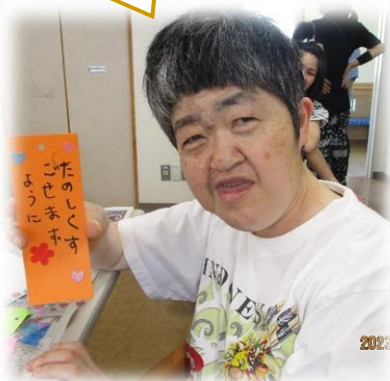 たのしくす
ごせます
ように
2023